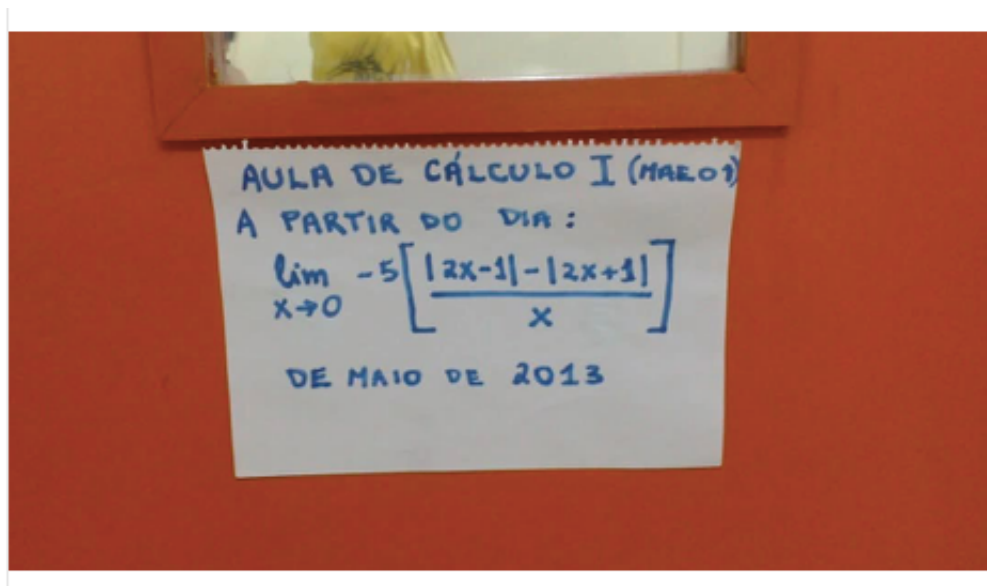 AULA DE CÁLCULO I (MAE01)
A PARTIR DO DIA:
lim x→0 -5[|2x-1|-|2x+1| / x]
DE MAIO DE 2013